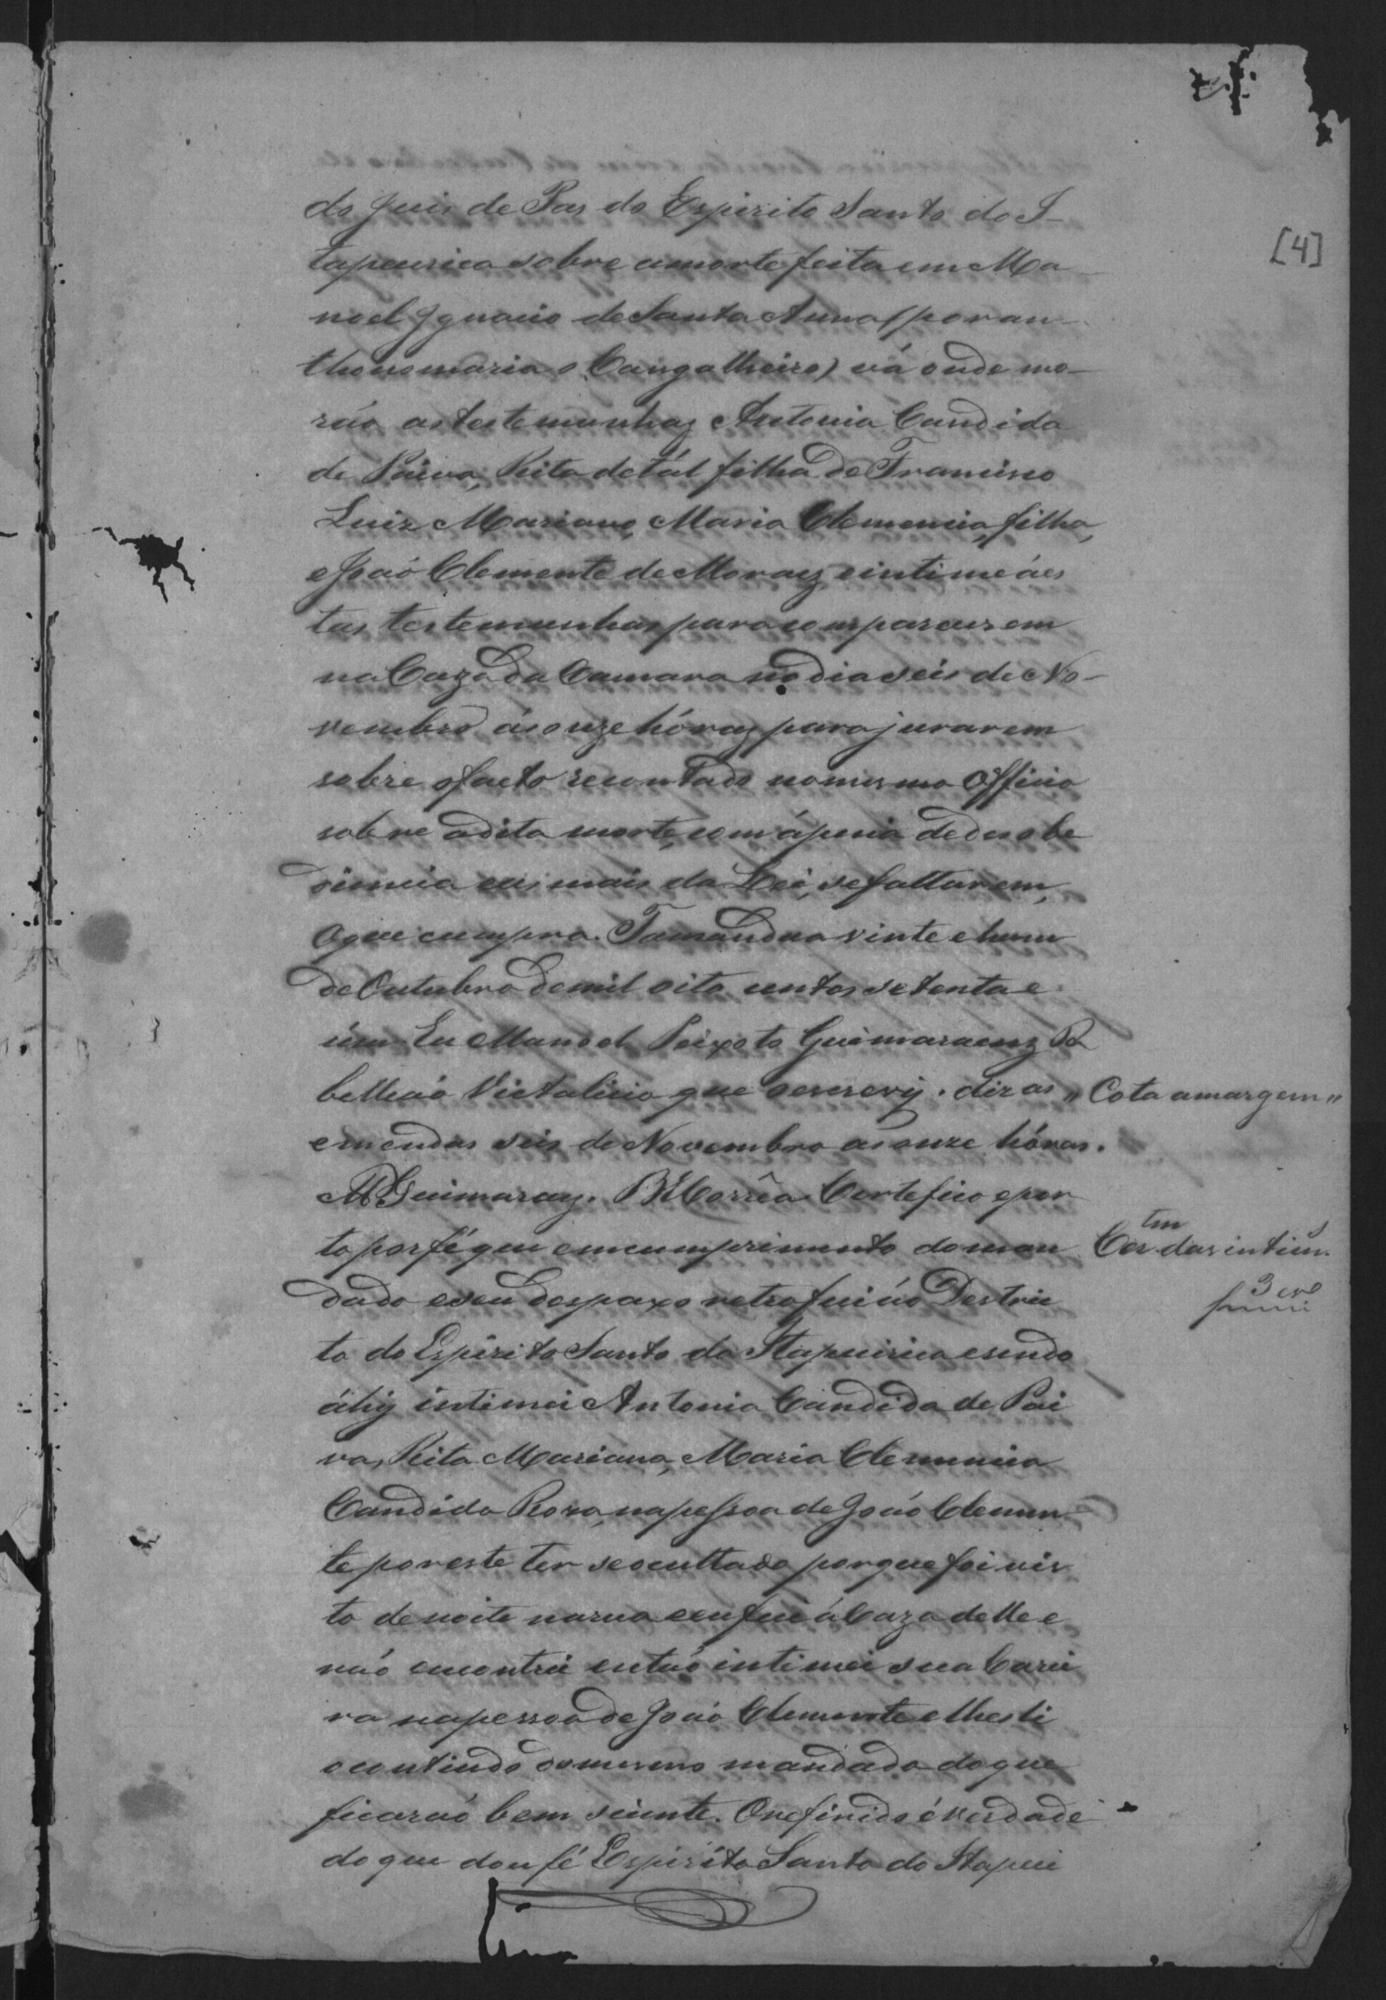 [4]
do Juis de Pas do Espirito Santo do I-
tapecirica sobre a morte feita em Ma-
noel Ignacio de Santa Anna (por an-
thonomaria o Cangalheiro) vá onde mo-
rão as testemunhas Antonia Candida
de Paiva, Rita de tál filha de Francisco
Luiz Mariano, Maria Clemencia, filha,
e João Clemente de Moraes, e intime á es
tas testemunhas para comparecerem
na Caza da Camara no dia seis de No-
vembro ás onze hóras para jurarem
sobre o facto recontado no mesmo Officio
sobre a dita morte, com á pena de desobe
diencia e as mais da Lei, se faltarem,
O que cumpra. Tamandua vinte e hum
de Outubro de mil oito centos setenta e
úm. Eu Manoel Peixoto Guimaraens Ta
bellião Victalicio que o escrevy. diz as
" Cota amargem "
emendas seis de Novembro as onze hóras.
M P Guimaraes. B X Corrêa. Certefico e por
to por fé que em cumprimento do man
Cer.tm das intim.s
dado e seu despaxo retro fui áo Destric
to do Espirito Santo do Itapecirica e sendo
áhy intimei Antonia Candida de Pai
va, Rita Mariana, Maria Clemencia
Candida Roza, na pessoa de João Clemen-
te por este ter se ocultado porque foi vis
to de noite na rua e eu fui á Caza delle e
não encontrei então intimei sua Carei
ra na pessoa de João Clemente e lhes li
o contiudo do mesmo mandado do que
ficarão bem sciente. O refirido é verdade
do que dou fé Espirito Santo do Itapeci